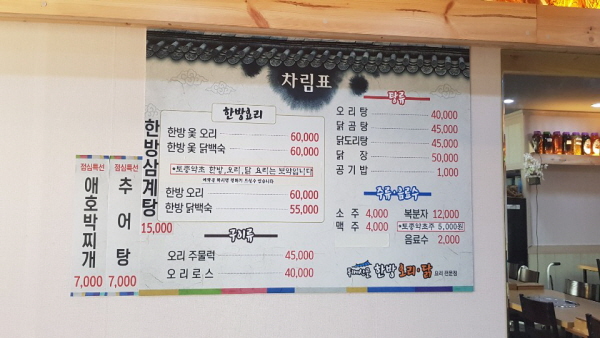 차림표
한방요리
한방 옻 오리 60,000
한방 옻 닭백숙 60,000
*토종약초 한방,오리,닭 요리는 보약입니다
한방 오리 60,000
한방 닭백숙 55,000
구이류
오리 주물럭 45,000
오리로스 40,000
탕류
오리탕 40,000
닭곰탕 45,000
닭도리탕 45,000
닭장 50,000
공기밥 1,000
주류·음료수
소주 4,000
맥주 4,000
복분자 12,000
*토종약초주 5,000원
음료수 2,000
한방 오리·닭 요리 전문점
한방삼계탕
15,000
점심특선
추어탕
7,000
점심특선
애호박찌개
7,000